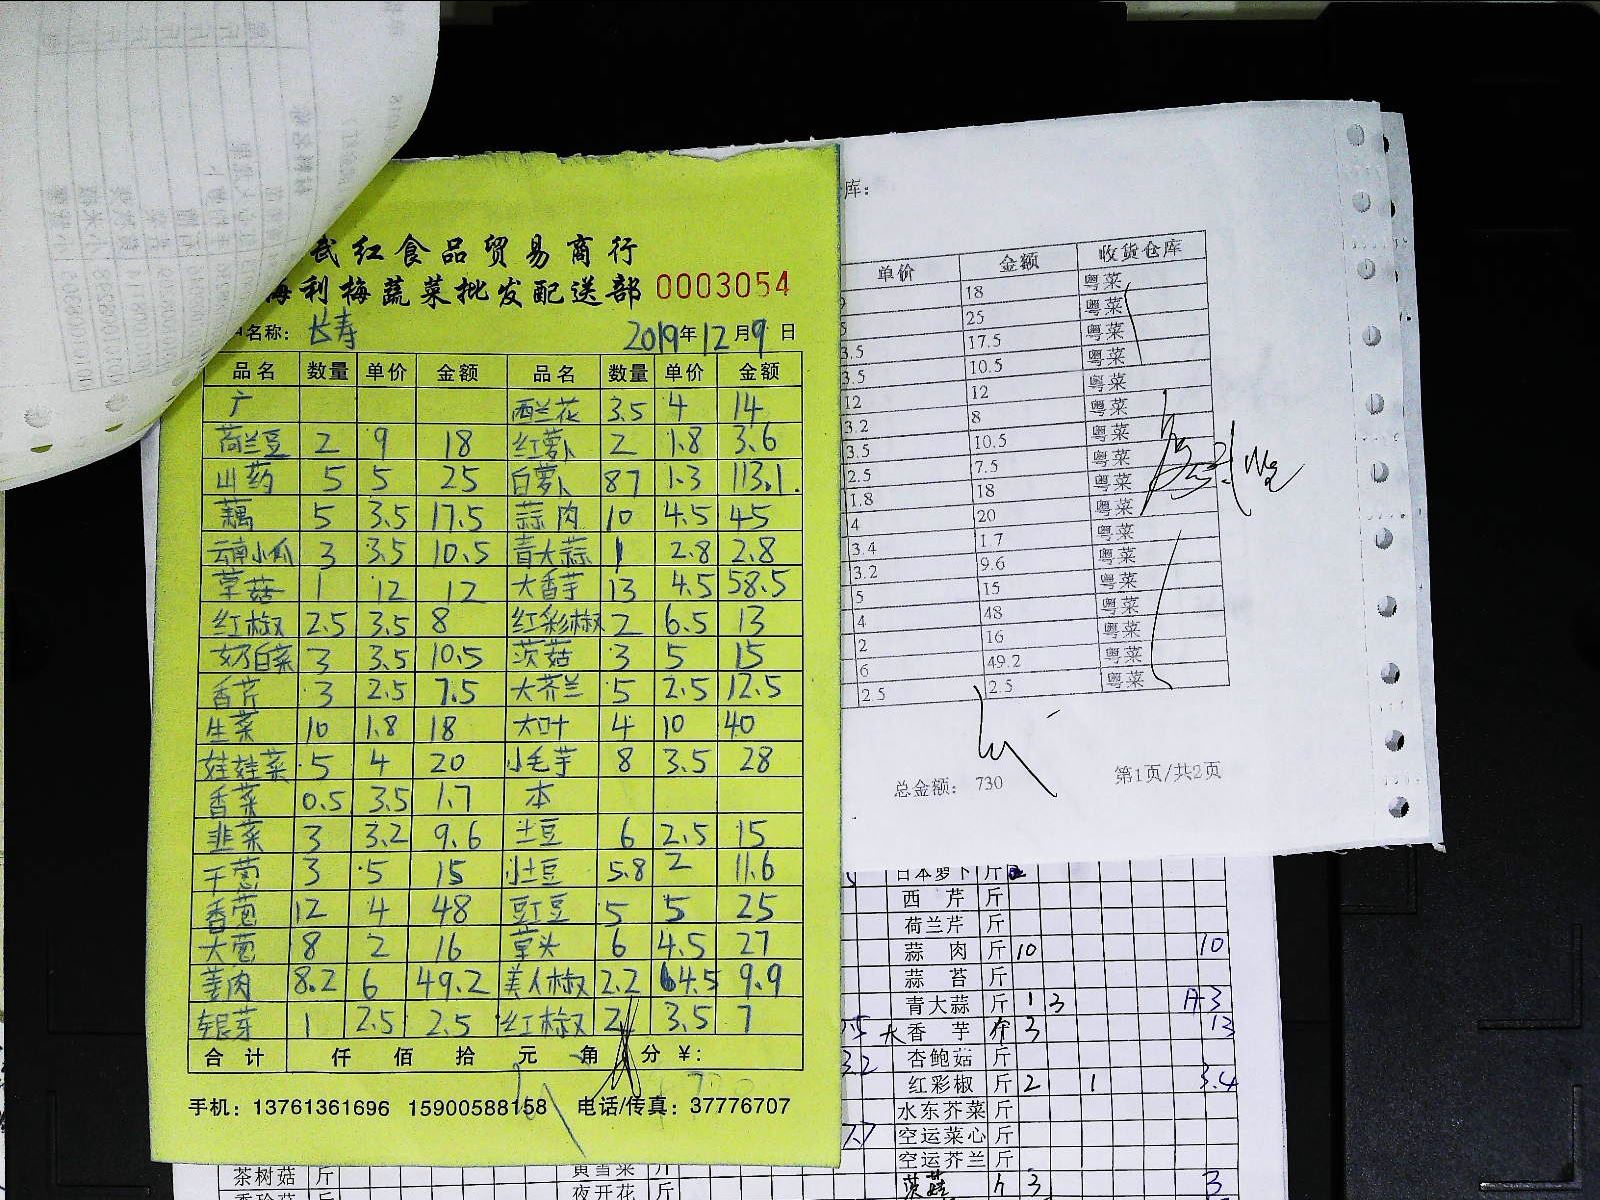 武红食品贸易商行
海利梅蔬菜批发配送部 0003054
名称: 长寿 2019年12月9日
品名 数量 单价 金额 品名 数量 单价 金额
广 西兰花 3.5 4 14
荷兰豆 2 9 18 红萝卜 2 1.8 3.6
山药 5 5 25 白萝卜 87 1.3 113.1
藕 5 3.5 17.5 蒜肉 10 4.5 45
云南小瓜 3 3.5 10.5 青大蒜 1 2.8 2.8
草菇 1 12 12 大香芋 13 4.5 58.5
红椒 2.5 3.5 8 红彩椒 2 6.5 13
奶白菜 3 3.5 10.5 茨菇 3 5 15
香芹 3 2.5 7.5 大芥兰 5 2.5 12.5
生菜 10 1.8 18 大叶 4 10 40
娃娃菜 5 4 20 小毛芋 8 3.5 28
香菜 0.5 3.5 1.7 本
韭菜 3 3.2 9.6 土豆 6 2.5 15
干葱 3 5 15 小土豆 5.8 2 11.6
香葱 12 4 48 豇豆 5 5 25
大葱 8 2 16 草头 6 4.5 27
姜肉 8.2 6 49.2 美人椒 2.2 4.5 9.9
银芽 1 2.5 2.5 红椒 2 3.5 7
合计 仟 佰 拾 元 角 分 ¥:
手机: 13761361696 15900588158 电话/传真: 37776707
库:
单价 金额 收货仓库
18 粤菜
25 粤菜
3.5 17.5 粤菜
3.5 10.5 粤菜
12 12 粤菜
3.2 8 粤菜
3.5 10.5 粤菜
2.5 7.5 粤菜
1.8 18 粤菜
4 20 粤菜
3.4 1.7 粤菜
3.2 9.6 粤菜
5 15 粤菜
4 48 粤菜
2 16 粤菜
6 49.2 粤菜
2.5 2.5 粤菜
总金额: 730 第1页/共2页
日本萝卜 斤
西芹 斤
荷兰芹 斤
蒜肉 斤 10 10
蒜苔 斤
青大蒜 斤 1 3
大香芋 3 13
杏鲍菇 斤
红彩椒 斤 2 1 3.4
水东芥菜 斤
空运菜心 斤
空运芥兰 斤
茨菇 3 3
茶树菇 斤
黄雪菜 斤
夜开花 斤